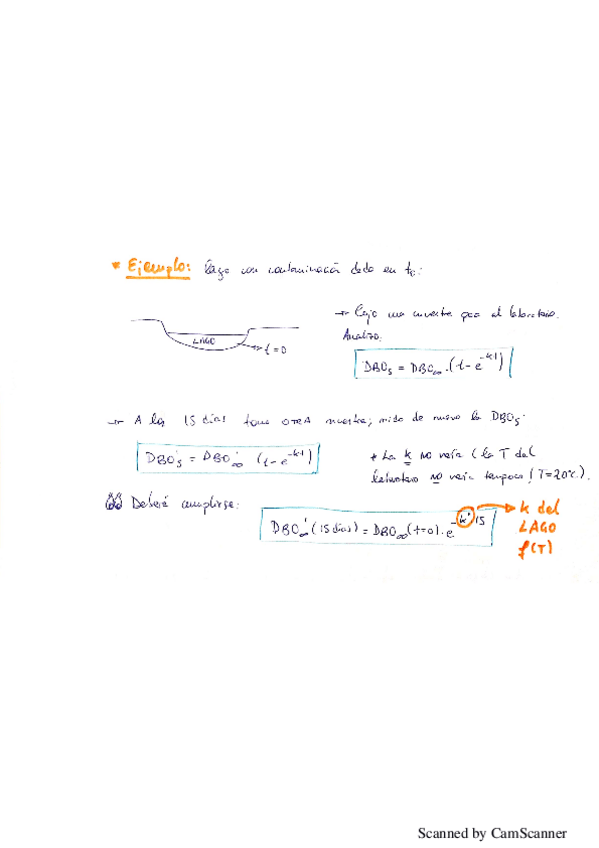 * Ejemplo: Lago con contaminación dada en t₀:
→ Cojo una muestra para el laboratorio.
Analizo.
LAGO → t=0
DBO₅ = DBO∞ · (1 - e^-k·t)
→ A los 15 días tomo OTRA muestra; mido de nuevo la DBO₅.
DBO'₅ = DBO'∞ (1 - e^-k·t)
* La k no varía (la T del
laboratorio no varía tampoco (T=20ºC).
Deberá cumplirse:
DBO'∞ (15 días) = DBO∞ (t=0) · e^-k'·15 → k del
LAGO
f(T)
Scanned by CamScanner